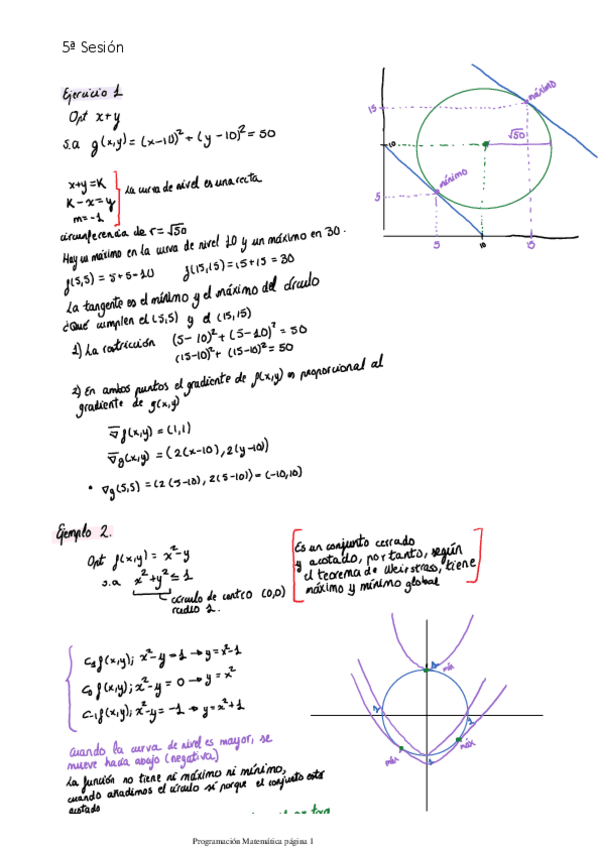 5ª Sesión
Ejercicio 1
Opt x+y
s.a g(x,y) = (x-10)² + (y-10)² = 50
x+y=K
K-x=y
m=-1
La curva de nivel es una recta
circunferencia de r=√50
Hay un máximo en la curva de nivel 10 y un máximo en 30.
f(5,5) = 5+5=10 f(15,15)=15+15=30
La tangente es el mínimo y el máximo del círculo
¿Qué cumplen el (5,5) y el (15,15)
1) La restricción (5-10)² + (5-10)² = 50
(15-10)² + (15-10)² = 50
2) En ambos puntos el gradiente de f(x,y) es proporcional al
gradiente de g(x,y)
∇f(x,y) = (1,1)
∇g(x,y) = (2(x-10), 2(y-10))
• ∇g(5,5)=(2(5-10), 2(5-10))=(-10,10)
15
10
5
máximo
√50
mínimo
5
10
15
Ejemplo 2.
Opt f(x,y) = x²-y
s.a x²+y² ≤ 1
círculo de centro (0,0)
radio 1.
Es un conjunto cerrado
y acotado, por tanto, según
el teorema de Weirstrass, tiene
máximo y mínimo global
C₁f(x,y); x²-y=1 → y=x²-1
C₀f(x,y); x²-y=0 → y=x²
C₋₁f(x,y); x²-y=-1 → y=x²+1
Cuando la curva de nivel es mayor, se
mueve hacia abajo (negativa)
La función no tiene ni máximo ni mínimo,
cuando añadimos el círculo sí porque el conjunto está
acotado
1
mín
máx
máx
Programación Matemática página 1